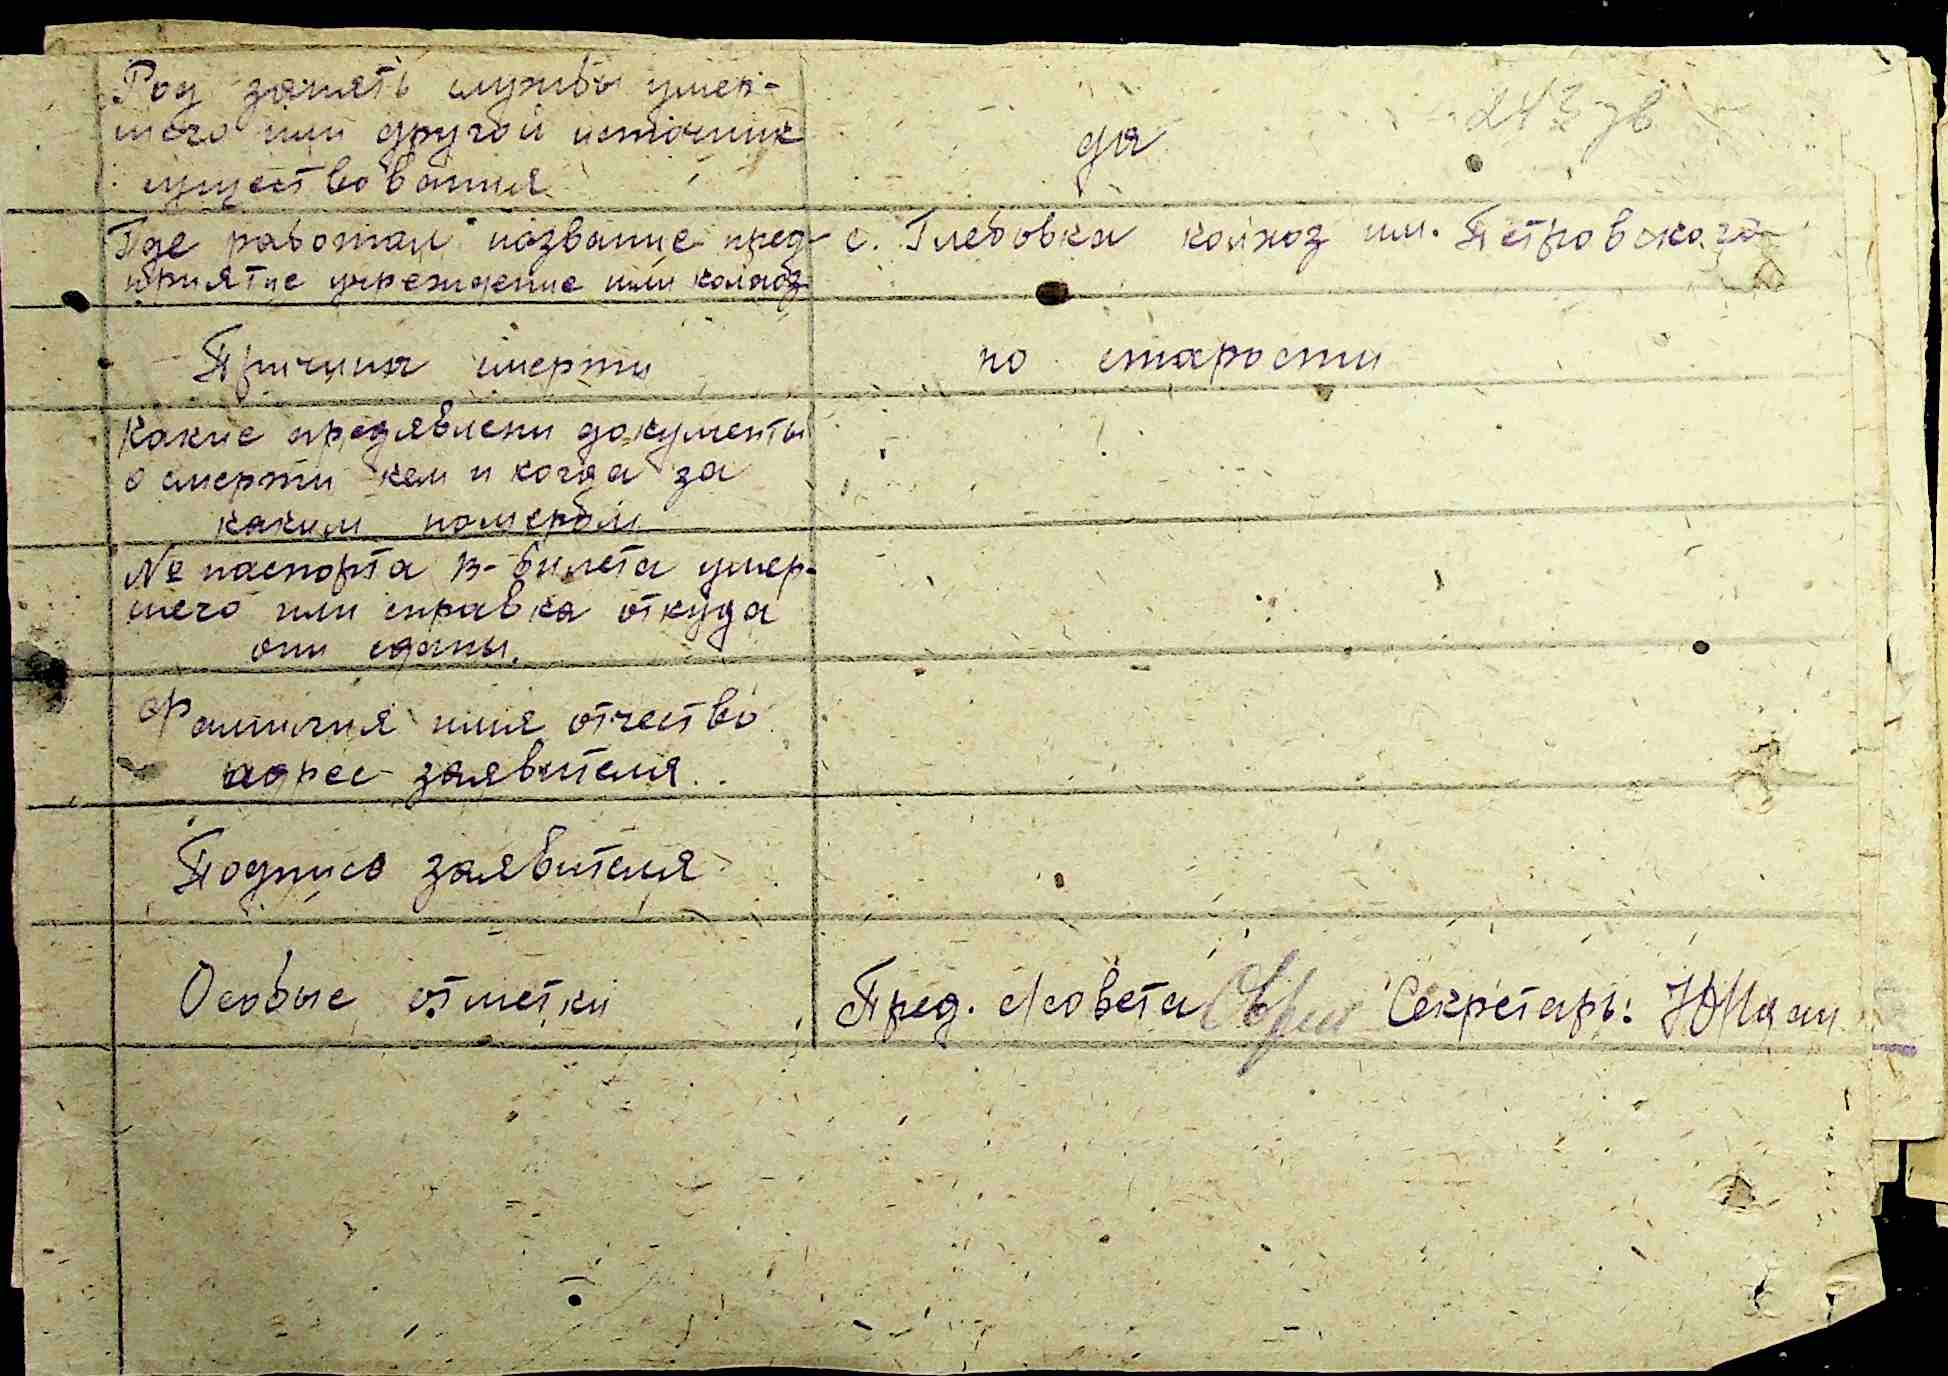 243 зв
Род занять службы умер-
шего или другой источник
существования
да
Где работал название пред-
приятие учреждение или колхоз
с. Глебовка колхоз им. Петровского
Причина смерти
по старости
Какие предявлени документы
о смерти кем и когда за
каким номером
№ паспорта в-билета умер-
шего или справка откуда
они сданы.
Фамилия имя отчество
адрес заявителя.
Подпись заявителя
Особые отметки
Пред. с/совета Секретарь: